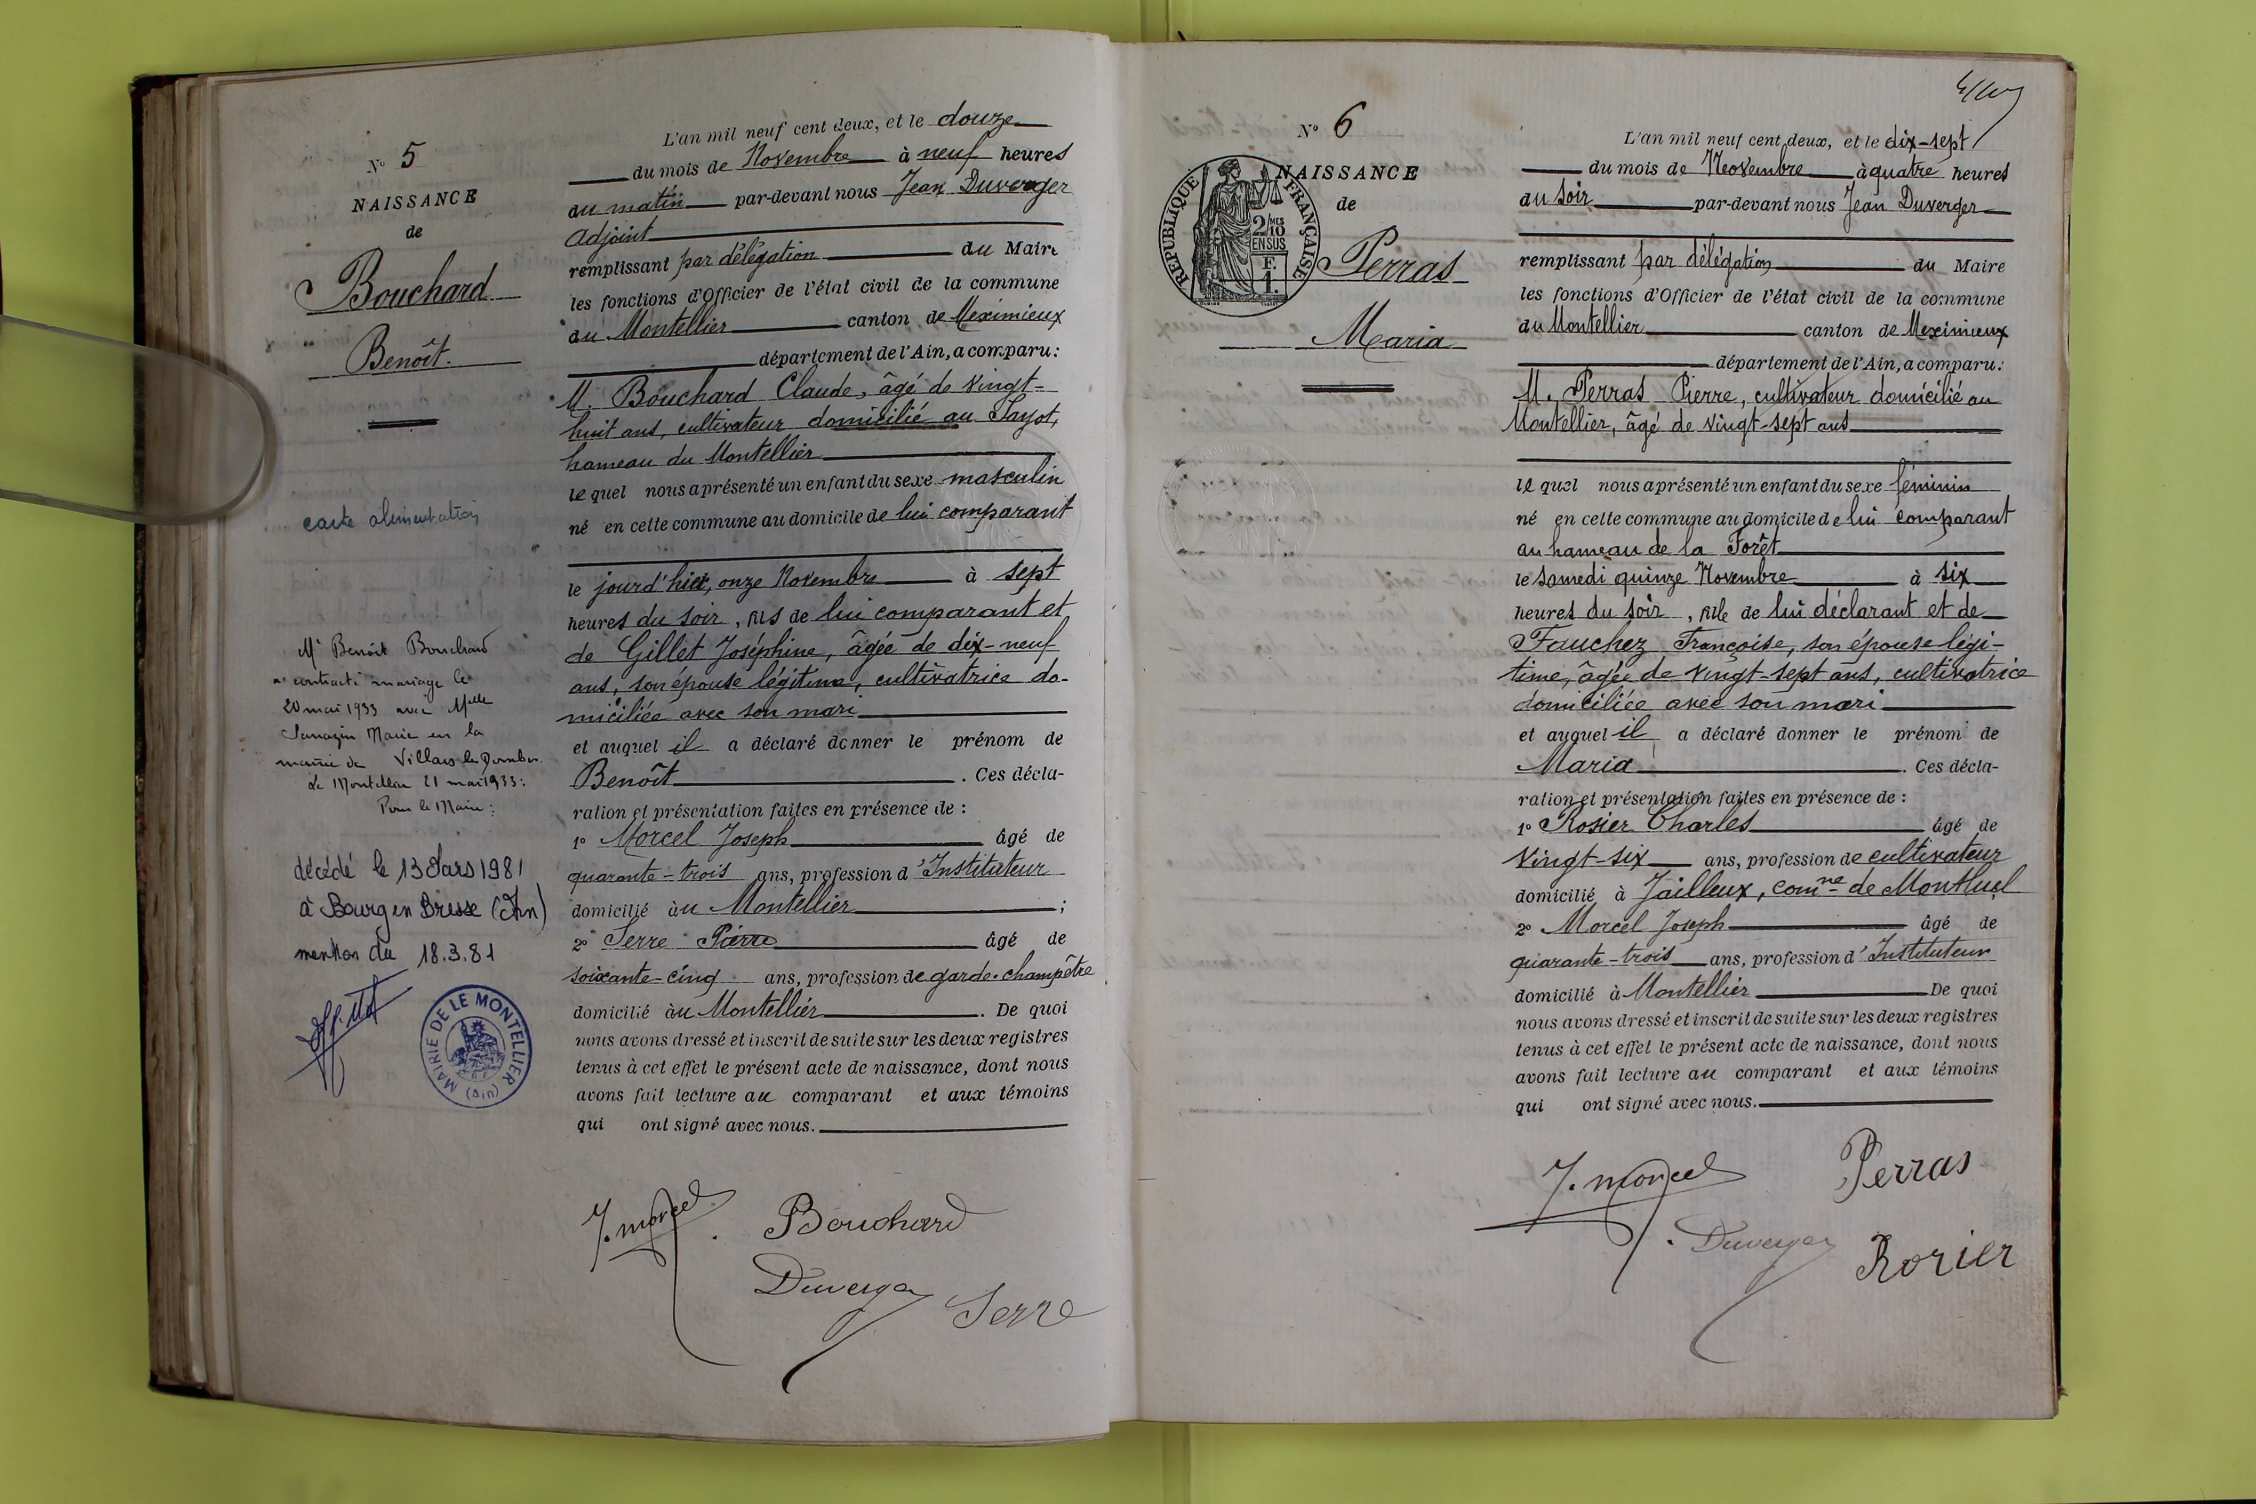 N° 5
NAISSANCE
de
Bouchard
Benoît.
carte alimentation
Mr Benoit Bouchard
a contracté mariage le
20 mai 1933 avec Melle
Marie en la
mairie de Villars les Dombes
Le Montellier 21 mai 1933:
Pour le Maire:
décédé le 13 Mars 1981
à Bourg en Bresse (Ain)
mention du 18.3.81
MAIRIE DE LE MONTELLIER (Ain)
L'an mil neuf cent deux, et le douze
du mois de Novembre à neuf heures
du matin par-devant nous Jean Duverger
adjoint
remplissant par délégation du Maire
les fonctions d'Officier de l'état civil de la commune
du Montellier canton de Meximieux
département de l'Ain, a comparu:
M. Bouchard Claude, âgé de vingt-
huit ans, cultivateur domicilié au Sayot,
hameau du Montellier
le quel nous a présenté un enfant du sexe masculin
né en cette commune au domicile de lui comparant
le jourd'hier, onze Novembre à sept
heures du soir, fils de lui comparant et
de Gillet Joséphine, âgée de dix-neuf
ans, son épouse légitime, cultivatrice do-
miciliée avec son mari
et auquel il a déclaré donner le prénom de
Benoît. Ces décla-
ration et présentation faites en présence de :
1° Morcel Joseph âgé de
quarante-trois ans, profession d'Instituteur
domicilié àu Montellier ;
2° Serre Pierre âgé de
soixante-cinq ans, profession de garde-champêtre
domicilié àu Montellier. De quoi
nous avons dressé et inscrit de suite sur les deux registres
tenus à cet effet le présent acte de naissance, dont nous
avons fait lecture au comparant et aux témoins
qui ont signé avec nous.
J. Morcel. Bouchard
Duverger Serre
N° 6
NAISSANCE
de
REPUBLIQUE FRANÇAISE
2/10 MES
EN SUS
F.
1.
Perras
Maria
L'an mil neuf cent deux, et le dix-sept
du mois de Novembre à quatre heures
du soir par-devant nous Jean Duverger
remplissant par délégation du Maire
les fonctions d'Officier de l'état civil de la commune
du Montellier canton de Meximieux
département de l'Ain, a comparu:
M. Perras Pierre, cultivateur domicilié au
Montellier, âgé de vingt-sept ans
le quel nous a présenté un enfant du sexe féminin
né en cette commune au domicile de lui comparant
au hameau de la Forêt
le samedi quinze Novembre à six
heures du soir, fille de lui déclarant et de
Fauchez Françoise, son épouse légi-
time, âgée de vingt-sept ans, cultivatrice
domiciliée avec son mari
et auquel il a déclaré donner le prénom de
Maria. Ces décla-
ration et présentation faites en présence de :
1° Rosier Charles âgé de
vingt-six ans, profession de cultivateur
domicilié à Jailleux, comne de Montluel
2° Morcel Joseph âgé de
quarante-trois ans, profession d'Instituteur
domicilié à Montellier De quoi
nous avons dressé et inscrit de suite sur les deux registres
tenus à cet effet le présent acte de naissance, dont nous
avons fait lecture au comparant et aux témoins
qui ont signé avec nous.
J. Morcel Perras
Duverger Rorier